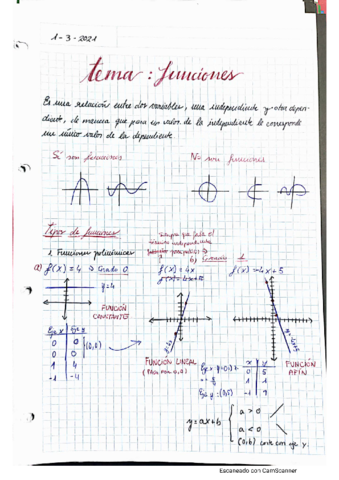 1-3-2021
tema: funciones
Es una relación entre dos variables, una independiente y otra depen-
diente, de manera que para un valor de la independiente le corresponde
un único valor de la dependiente.
Sí son funciones
No son funciones
Tipos de funciones
1. Funciones polinómicas
a) f(x)=4 → Grado 0
y=4
FUNCIÓN
CONSTANTE
f(x)=4x
FUNCIÓN LINEAL
(Pasa por 0,0)
f(x)=4x+5
y=4x+5
FUNCIÓN
AFÍN
Eje x Eje y
0 0
0 0
1 4
-1 -4
(0,0)
x y
0 5
1 1
-1 9
y=ax+b
a > 0
a < 0
(0,b) corte con eje y.
Escaneado con CamScanner